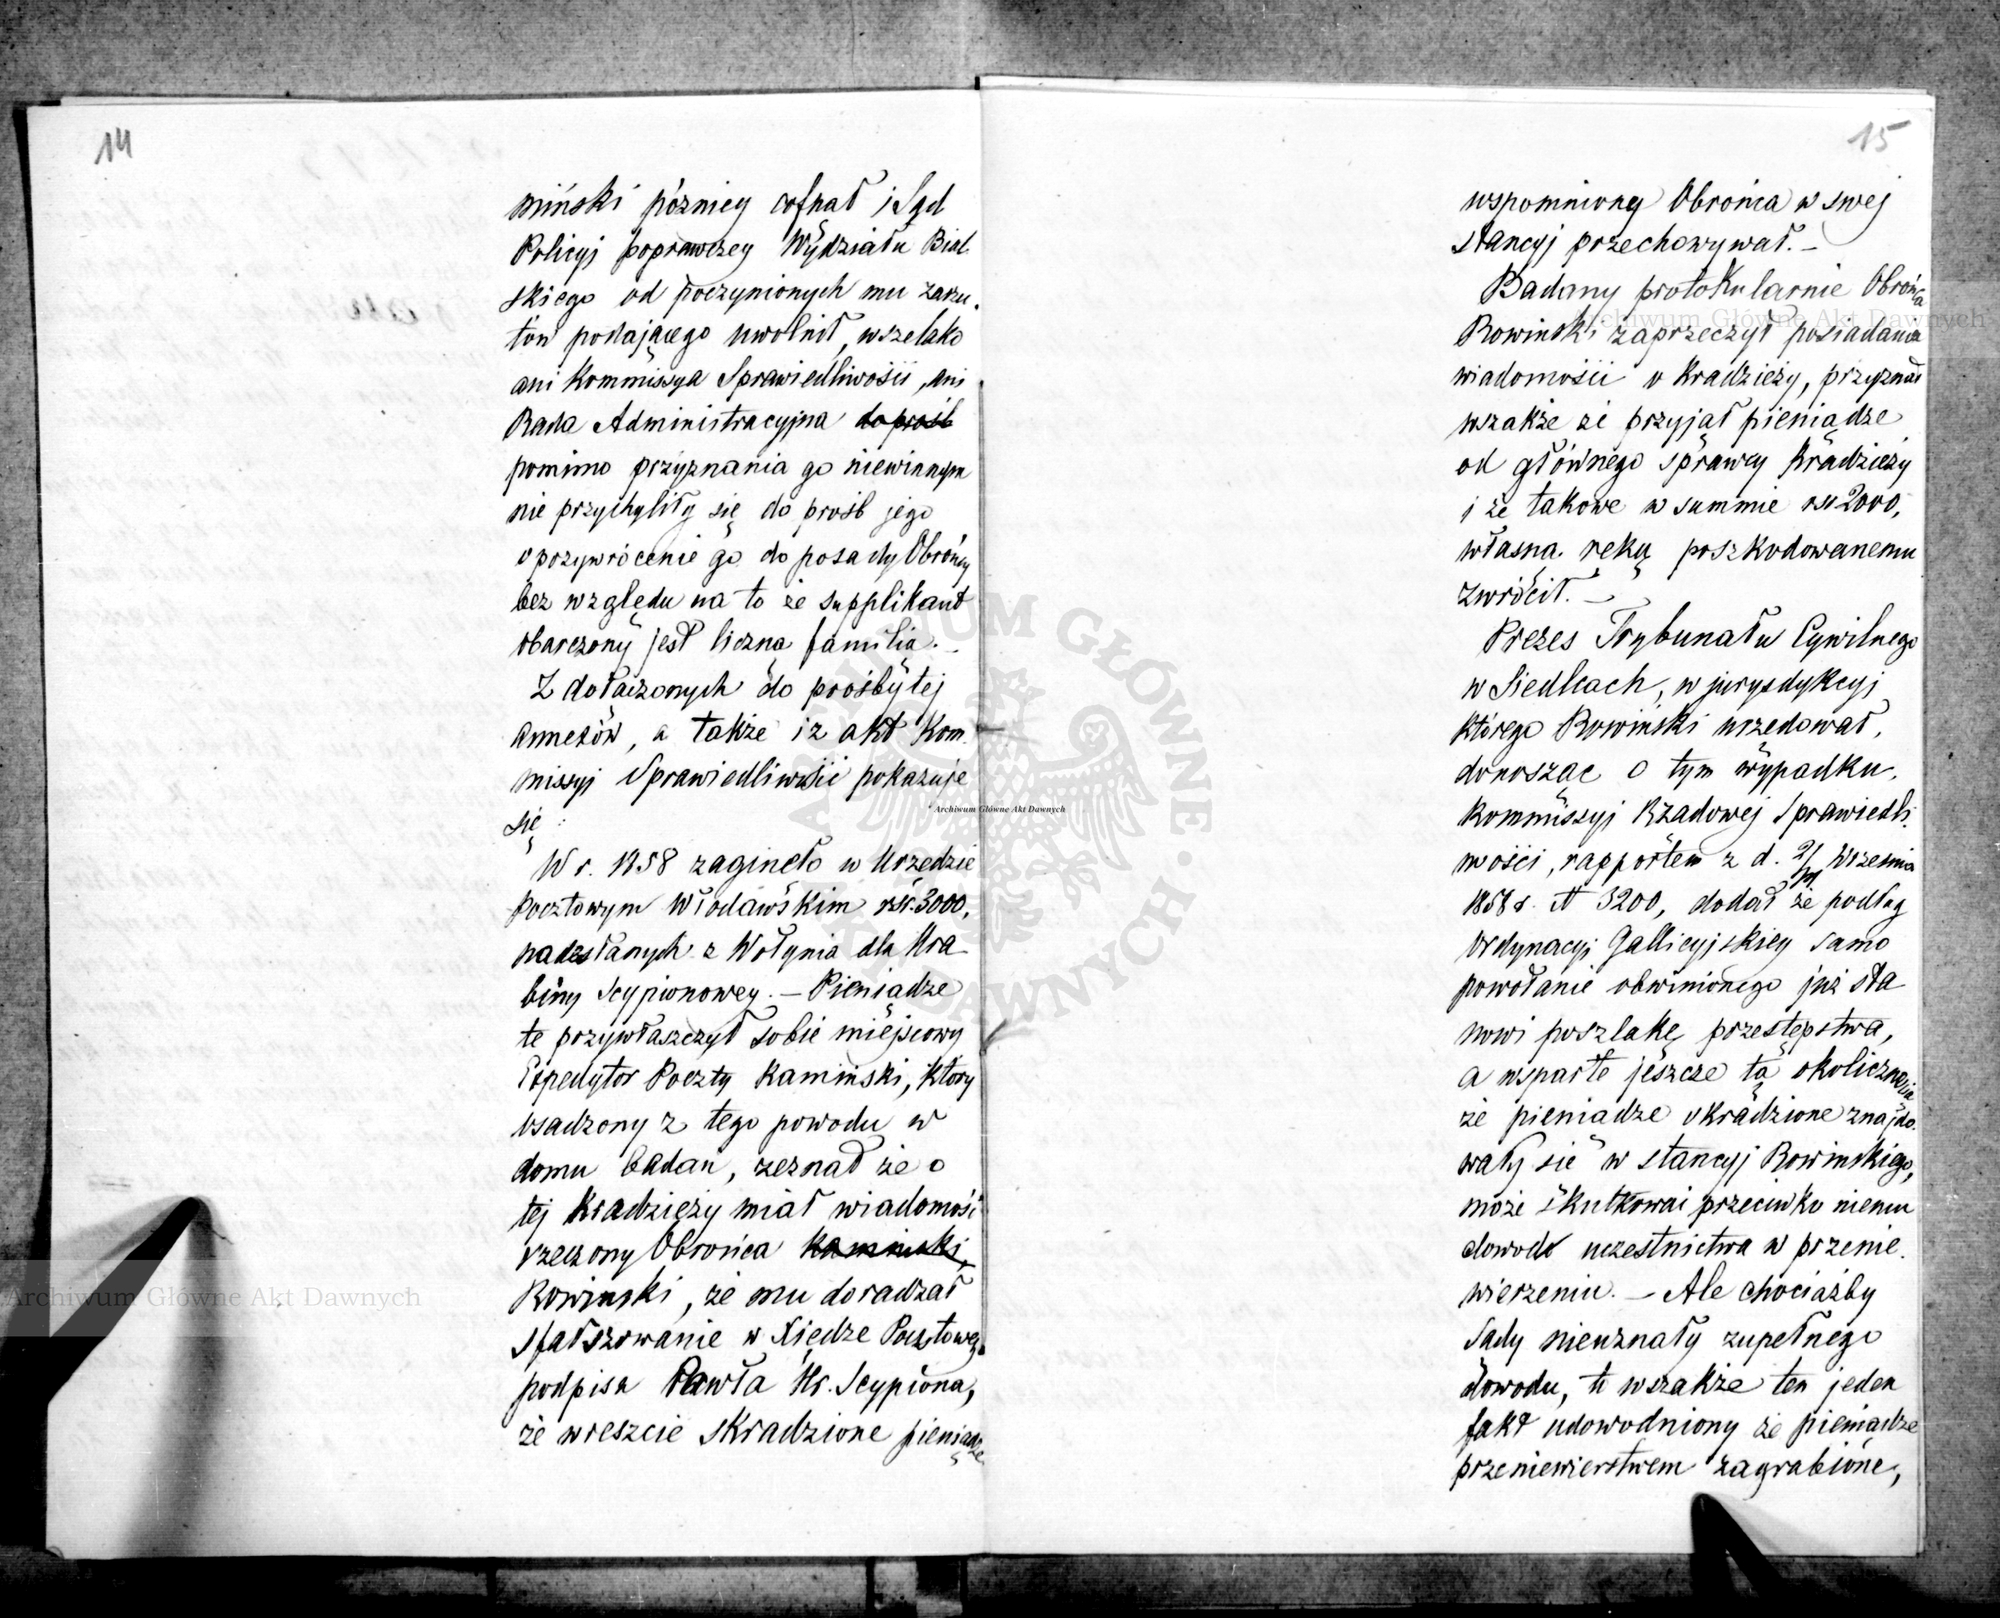 14
miński pózniey cofnął i Sąd
Policyi poprawczey Wydziału Bial
skiego od poczynionych mu zarzu.
tów podającego uwolnił, wszelako
ani Kommissya Sprawiedliwości, ani
Rada Administracyjna do prośb
pomimo przyznania go niewinnym
nie przychyliły się do prośb jego
o przywrócenie go do posady Obrońcy
bez względu na to że supplikant
obarczony jest liczną familią. –
Z dołączonych do prośby tej
annexów, a także iz akt Kom
missyi Sprawiedliwości pokazuje
się :
W r. 1858 zaginęło w Urzędzie
Pocztowym Włodawskim rsr. 3000,
nadesłanych z Wołynia dla Hra
biny Scypionowey. – Pieniądze
te przywłaszczył sobie miejscowy
Expedytor Poczty Kamiński, który
osadzony z tego powodu w
domu badań, zeznał że o
tej kradzieży miał wiadomość
rzeczony Obrońca Kaminski,
Rowinski, że mu doradzał
sfałszowanie w Xiędze Pocztowey
podpisu Pawła Hr. Scypiona,
że wreszcie skradzione pieniądze
15
wspomniony Obrońca w swej
stancyi przechowywał. –
Badany protokularnie Obrońca
Rowinski zaprzeczył posiadania
wiadomości o kradzieży, przyznał
wszakże że przyjął pieniądze
od głównego sprawcy kradzieży
i że takowe w summie rsr 2000,
własną ręką poszkodowanemu
zwrócił. –
Prezes Trybunału Cywilnego
w Siedlcach, w jurysdykcyi
którego Rowiński urzędował,
donosząc o tym wypadku
Kommissyi Rządowej Sprawiedli
wości, rapportem z d. Września
1858 r. N 3200, dodał że podług
Ordynacyi Gallicyjskiey samo
powołanie obwinionego już sta
nowi poszlakę przestępstwa,
a wsparte jeszcze tą okolicznością
że pieniądze ukradzione znajdo.
wały się w stancyi Rowinskiego,
może skutkować przeciwko niemu
dowód uczestnictwa w przenie.
wierzeniu. – Ale chociażby
Sądy nieuznały zupełnego
dowodu, to wszakże ten jeden
fakt udowodniony że pieniądze
przeniewierstwem zagrabione,
Archiwum Główne Akt Dawnych
Archiwum Główne Akt Dawnych
Archiwum Główne Akt Dawnych
ARCHIWUM GŁÓWNE AKT DAWNYCH